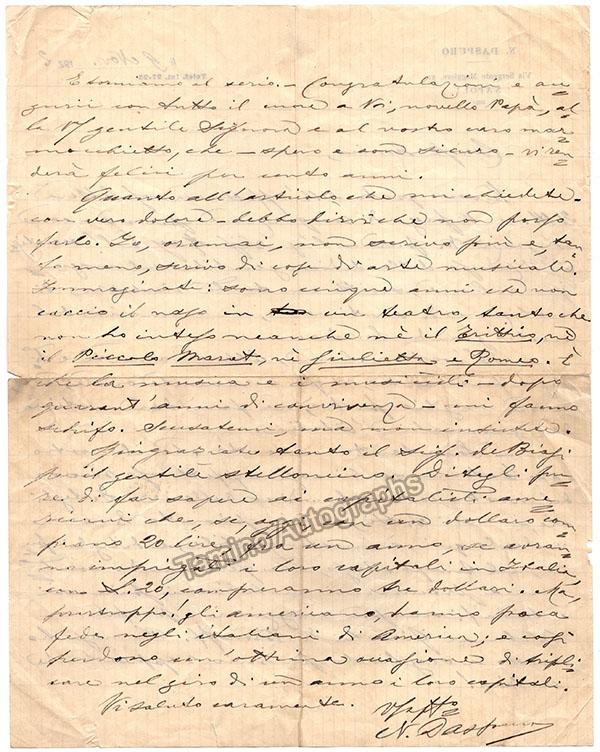 E torniamo al serio. - Congratulazioni e au=
gurii con tutto il cuore a Voi, novello Papà, al=
la Vs/ gentile Signora e al vostro caro mar=
mocchietto, che - spero e son sicuro - vi ren=
derà felici per cento anni.
Quanto all'articolo che mi chiedete -
con vero dolore - debbo dirvi che non posso
farlo. Io, oramai, non scrivo più e, tan=
to meno, scrivo di cose di arte musicale.
Immaginate: sono cinque anni che non
caccio il naso in un teatro, tanto che
non ho inteso neanche nè il Trittico, nè
il Piccolo Marat, nè Giulietta e Romeo. È
che la musica e i musicisti - dopo
quarant'anni di convivenza - mi fanno
schifo. Scusatemi, ma non insistete.
Ringraziate tanto il sig. de Biasi
per il gentile stelloncino. Ditegli pu=
re di far sapere ai capitalisti ame=
ricani che, se, oggi, con un dollaro com=
prano 20 lire, fra un anno, se avran=
no impiegati i loro capitali in Italia,
con L. 20, compreranno tre dollari. Ma,
purtroppo! gli americani, hanno poca
fede negli italiani di America; e così
perdono un'ottima occasione di tripli=
care nel giro di un anno i loro capitali.
Vi saluto caramente.
Vs/ affo
N. Daspuro
N. DASPURO
Tamino Autographs